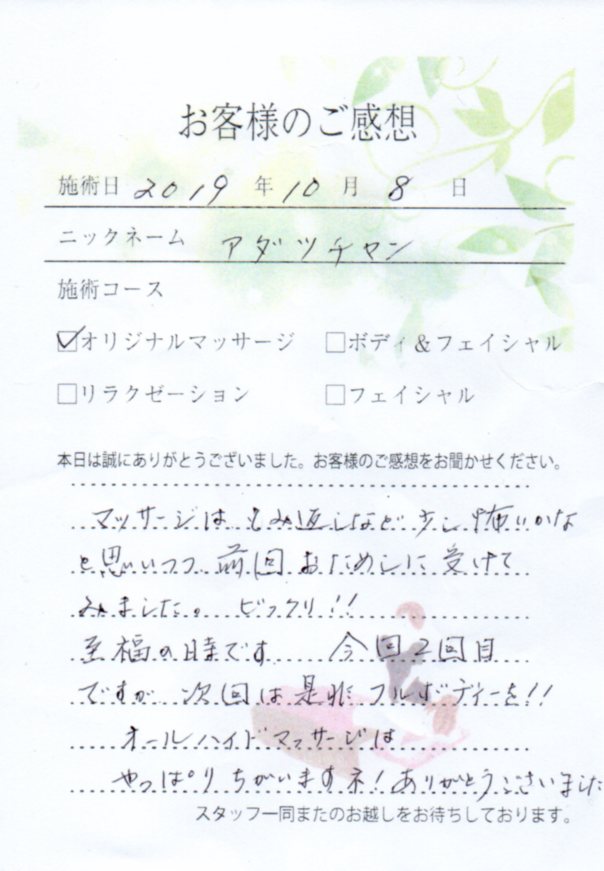 お客様のご感想
施術日 2019 年 10 月 8 日
ニックネーム アダツチャン
施術コース
☑オリジナルマッサージ □ボディ＆フェイシャル
□リラクゼーション □フェイシャル
本日は誠にありがとうございました。お客様のご感想をお聞かせください。
マッサージは もみ返しなど 少し 怖いかな
と思いつつ 前回 おためしに 受けて
みました。 ビックリ!!
至福の時です 今回2回目
ですが 次回は是非 フルボディーを!!
オールハンドマッサージは
やっぱり ちがいますネ! ありがとうございました
スタッフ一同またのお越しをお待ちしております。